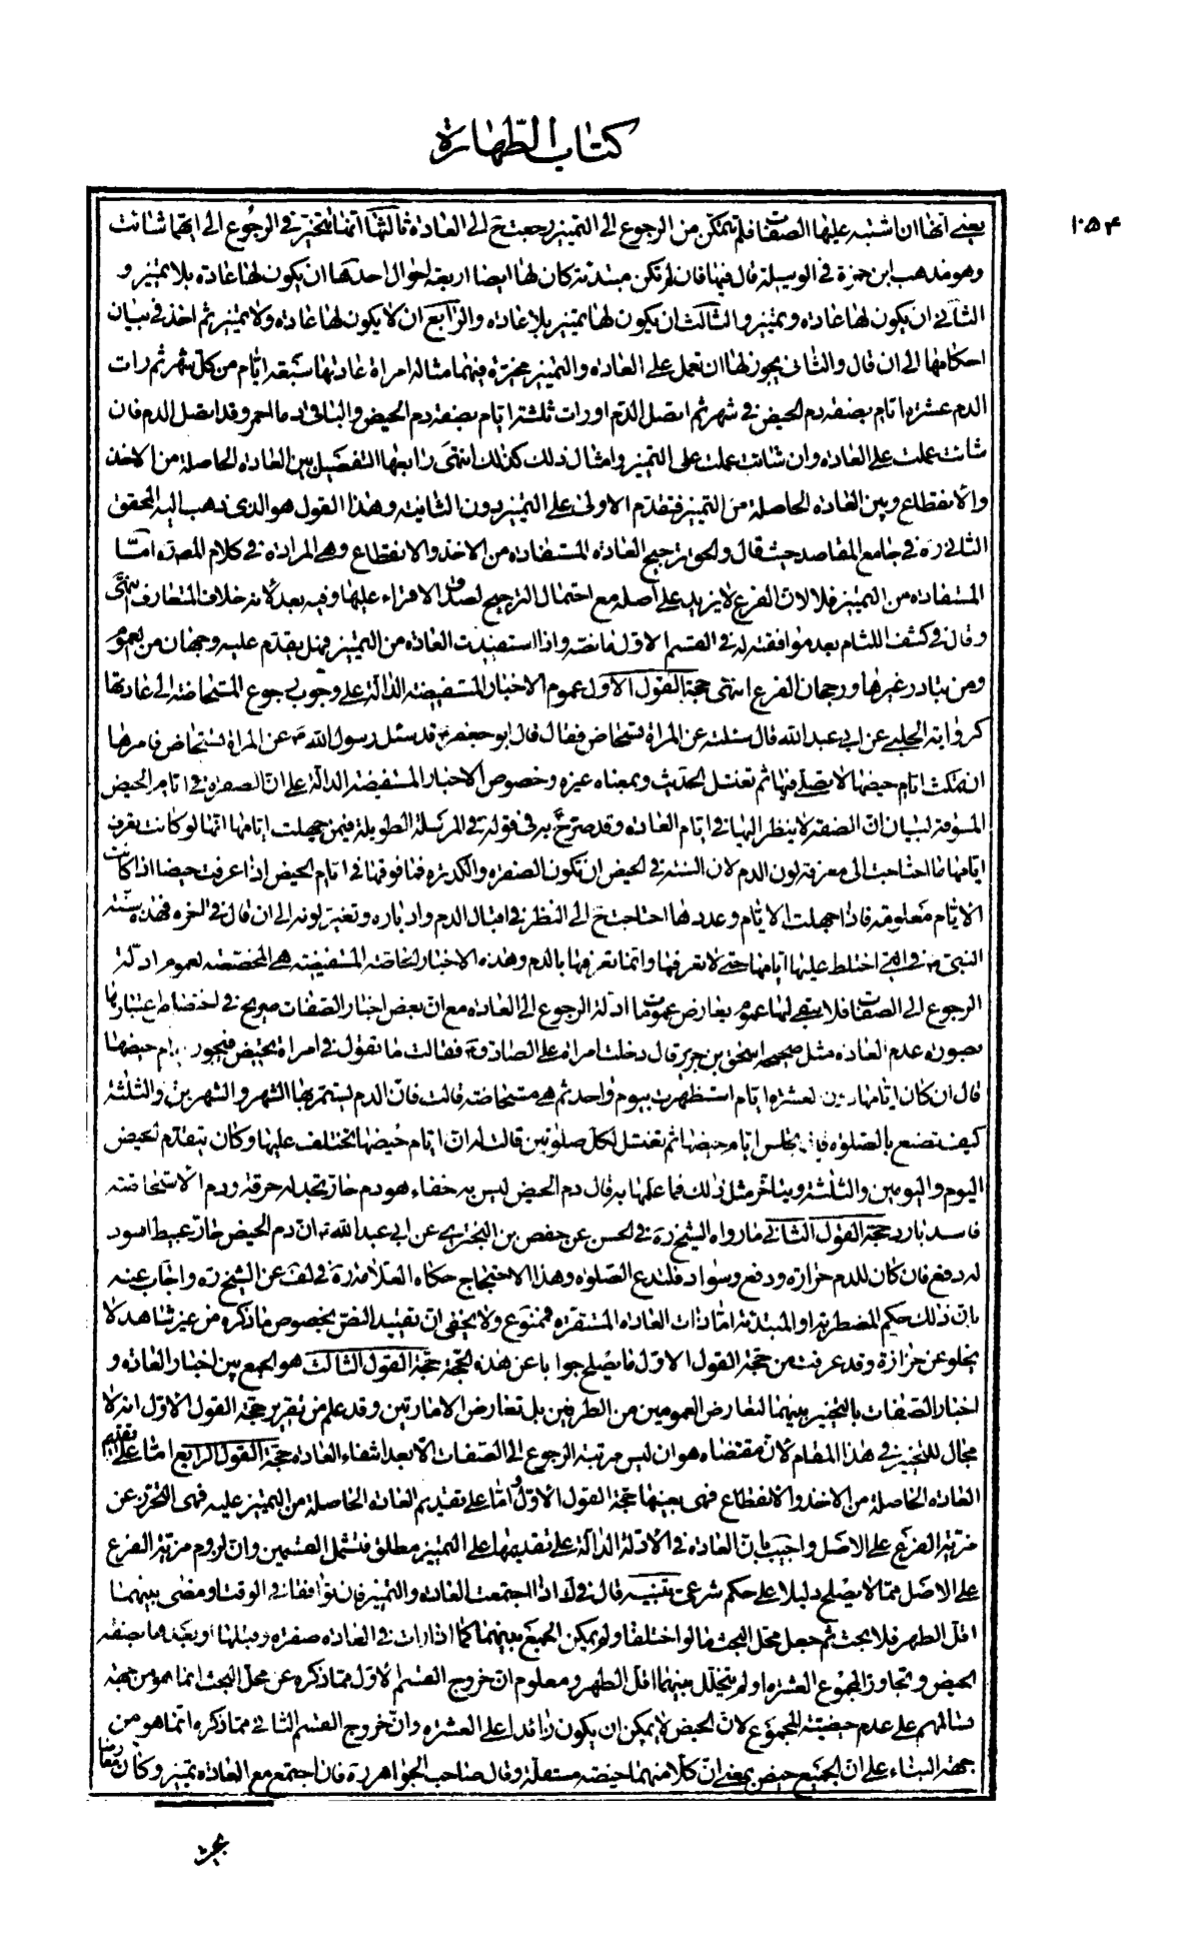 كتاب الطهارة
١٠٥٤
يعنى انها ان اشتبه عليها الصفات فلم تتمكن من الرجوع الى التميز رجعت ح الى العادة ثالثها انما تتخير فى الرجوع الى ايهما شائت
وهو مذهب ابن حمزة فى الوسيلة قال فيها فان لم تكن مبتدئة كان لها ايضا اربعة احوال احدها ان يكون لها عادة بلا تميز و
الثانى ان يكون لها عادة وتميز والثالث ان يكون لها تميز بلا عادة والرابع ان لا يكون لها عادة ولا تميز ثم اخذ فى بيان
احكامها الى ان قال والثانى يجوز لها ان تعمل على العادة والتميز مخيرة فيهما مثاله امراة عادتها سبعة ايام من كل شهر ثم رات
الدم عشرة ايام بصفة دم الحيض فى شهر ثم اتصل الدم او رات ثلثة ايام بصفة دم الحيض والباقى دما احمر وقد اتصل الدم فان
شائت عملت على العادة وان شائت عملت على التميز وامثال ذلك كذلك انتهى رابعها التفصيل بين العادة الحاصلة من الاخذ
والانقطاع وبين العادة الحاصلة من التميز فتقدم الاولى على التميز دون الثانية وهذا القول هو الذى ذهب اليه المحقق
الثانى ره فى جامع المقاصد حيث قال والحق ترجيح العادة المستفادة من الاخذ والانقطاع وهى المرادة فى كلام المصنف امّا
المستفادة من التميز فلا لان الفرع لا يزيد على اصله مع احتمال الترجيح لصدق الاقراء عليها وفيه بعد لانه خلاف المتعارف انتهى
وقال فى كشف اللثام بعد موافقته له فى القسم الاول ما نصه واذا استفيدت العادة من التميز فهل يقدم عليه وجهان من العموم
ومن تبادر غيرها ورجحان الفرع انتهى حجة القول الاول عموم الاخبار المستفيضة الدالة على وجوب رجوع المستحاضة الى عادتها
كرواية الحلبى عن ابى عبد الله قال سئلته عن المراة تستحاض فقال قال ابو جعفر ع قد سئل رسول الله ص عن المراة تستحاض فامرها
ان تمكث ايام حيضها لا تصلى فيها ثم تغتسل الحديث وبمعناه غيره وخصوص الاخبار المستفيضة الدالة على ان الصفرة فى ايام الحيض
المسوقة لبيان ان الصفة لا ينظر اليها فى ايام العادة وقد صرح به فى قوله فى المرسلة الطويلة فيمن جهلت ايامها انها لو كانت تعرف
ايامها ما احتاجت الى معرفة لون الدم لان السنة فى الحيض ان تكون الصفرة والكدرة فما فوقها فى ايام الحيض اذا عرفت حيضا اذا كانت
الايام معلومة فاذا جهلت الايام وعددها احتاجت ح الى النظر فى اقبال الدم وادباره وتغير لونه الى ان قال فى اخره فهذه سنة
النبى ص فى التى اختلط عليها ايامها حتى لا تعرفها وانما تعرفها بالدم وهذه الاخبار الخاصة المستفيضة هى المخصصة لعموم ادلة
الرجوع الى الصفات فلا يبقى لها عموم يعارض عمومات ادلة الرجوع الى العادة مع ان بعض اخبار الصفات صريح فى اختصاص اعتبارها
بصورة عدم العادة مثل صحيحة اسحق بن جرير قال دخلت امراة على الصادق ع فقالت ما تقول فى امراة تحيض فيجوز ايام حيضها
قال ان كان ايامها دون لعشرة ايام استظهرت بيوم واحد ثم هى مستحاضة قالت فان الدم يستمر بها الشهر والشهرين والثلثة
كيف تصنع بالصلوة قال تجلس ايام حيضها ثم تغتسل لكل صلوتين قالت له ان ايام حيضها تختلف عليها وكان يتقدم الحيض
اليوم واليومين والثلثة ويتاخر مثل ذلك فما علمها به قال دم الحيض ليس به خفاء هو دم حار تجد له حرقة ودم الاستحاضة
فاسد بارد حجة القول الثانى ما رواه الشيخ ره فى الحسن عن حفص بن البخترى عن ابى عبد الله ع ان دم الحيض حار عبيط اسود
له دفع فان كان للدم حرارة ودفع وسواد فلتدع الصلوة وهذا الاحتجاج حكاه العلامة ره فى لف عن الشيخ ره واجاب عنه
بان ذلك حكم المضطربة او المبتدئة امّا ذات العادة المستقرة فممنوع ولا يخفى ان تقييد النص بخصوص ما ذكره من غير شاهد لا
يخلو عن حزازة وقد عرفت من حجة القول الاول ما يصلح جوابا عن هذه الحجة حجة القول الثالث هو الجمع بين اخبار العادة و
اخبار الصفات بالتخيير بينهما لتعارض العمومين من الطرفين بل تعارض الامارتين وقد علم من تقرير حجة القول الاول انه لا
مجال للتخيير فى هذا المقام لان مقتضاه هو ان ليس مرتبة الرجوع الى الصفات الا بعد انتفاء العادة حجة القول الرابع امّا على تقديم
العادة الحاصلة من الاخذ والانقطاع فهى بعينها حجة القول الاول وامّا على تقديم العادة الحاصلة من التميز عليه فهى التحرز عن
مزية الفرع على الاصل واجيب بان العادة فى الادلة الدالة على تقديمها على التميز مطلق فتشمل القسمين وان لزوم مزية الفرع
على الاصل ممّا لا يصلح دليلا على حكم شرعى تنبيه قال فى لك اذا اجتمعت العادة والتميز فان توافقا فى الوقت او مضى بينهما
اقل الطهر فلا بحث ثم جعل محل البحث ما لو اختلفا ولم يمكن الجمع بينهما كما اذا رات فى العادة صفرة وقبلها او بعدها بصفة
الحيض وتجاوز المجموع العشرة او لم يتخلل بينهما اقل الطهر ومعلوم ان خروج القسم الاول ممّا ذكره عن محل البحث انما هو من جهة
تسالمهم على عدم حيضية المجموع لان الحيض لا يمكن ان يكون زائدا على العشرة وان خروج القسم الثانى ممّا ذكره انما هو من
جهة البناء على ان الجميع حيض بمعنى ان كلا منهما حيضة مستقلة وقال صاحب الجواهر ره فان اجتمع مع العادة تميز وكان زمانها
بحيث